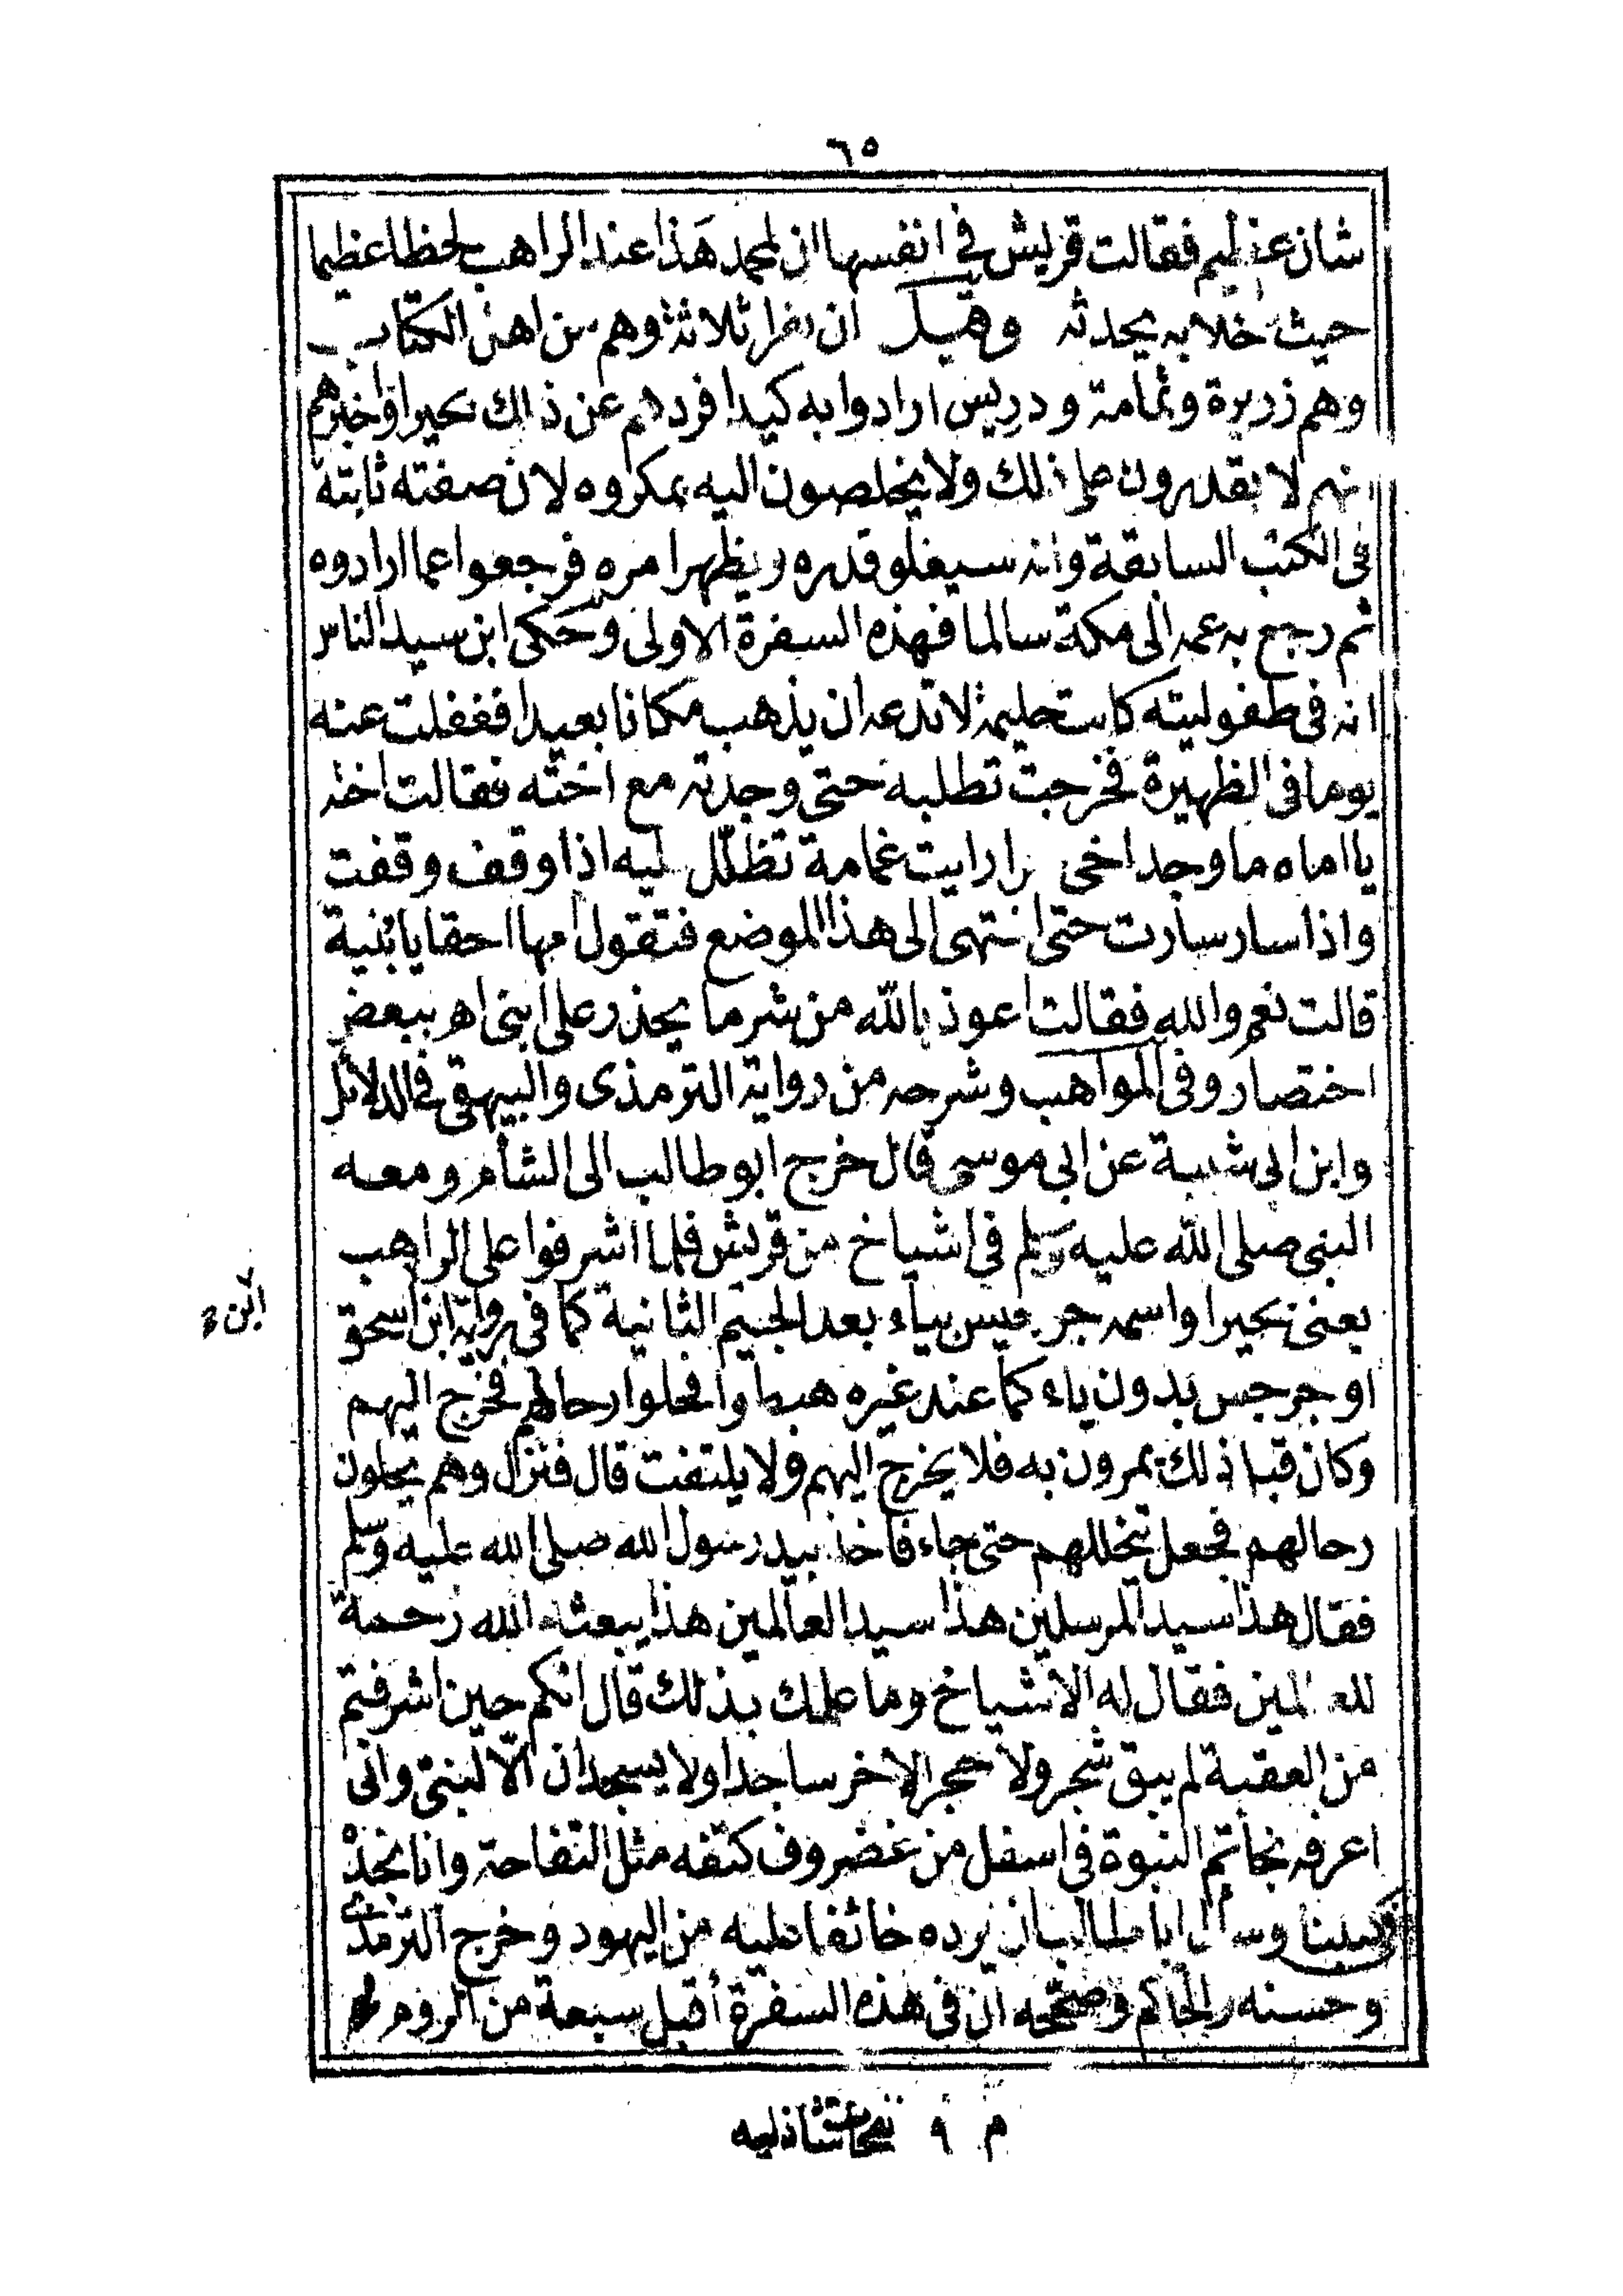 ٦٥
شان عظيم فقالت قريش في انفسها ان لمحمد هذا عند الراهب لحظا عظيما
حيث خلا به يحدثه وقيل ان نفرا ثلاثة وهم من اهل الكتاب
وهم زريرة وثمامة ودريس ارادوا به كيدا فردهم عن ذالك بحيرا واخبرهم
انهم لا يقدرون على ذلك ولا يخلصون اليه بمكروه لان صفته ثابتة
فى الكتب السابقة وانه سيغلو قدره ويظهر امره فرجعوا عما ارادوه
ثم رجع به عمه الى مكة سالما فهذه السفرة الاولى وحكى ابن سيد الناس
انه فى طفوليته كانت حليمة لا تدعه ان يذهب مكانا بعيدا فغفلت عنه
يوما فى الظهيرة فخرجت تطلبه حتى وجدته مع اخته فقالت اخته
يا اماه ما وجد اخى حرا رايت غمامة تظلل عليه اذا وقف وقفت
واذا سار سارت حتى انتهى الى هذا الموضع فتقول امها احقا يا بنية
قالت نعم والله فقالت اعوذ بالله من شر ما يحذر على ابنى اهـ ببعض
اختصار وفى المواهب وشرحه من رواية الترمذى والبيهقى فى الدلائل
وابن ابى شيبة عن ابى موسى قال خرج ابو طالب الى الشأم ومعه
النبى صلى الله عليه وسلم فى اشياخ من قريش فلما اشرفوا على الراهب
يعنى بحيرا واسمه جرجيس بياء بعد الجيم الثانية كما فى رواية ابن اسحق
او جرجس بدون ياء كما عند غيره هبطوا فحلوا رحالهم فخرج اليهم
وكان قبل ذلك يمرون به فلا يخرج اليهم ولا يلتفت قال فنزل وهم يحلون
رحالهم فجعل يتخللهم حتى جاء فاخذ بيد رسول الله صلى الله عليه وسلم
فقال هذا سيد المرسلين هذا سيد العالمين هذا يبعثه الله رحمة
للعالمين فقال له الاشياخ وما علمك بذلك قال انكم حين اشرفتم
من العقبة لم يبق شجر ولا حجر الا خر ساجدا ولا يسجدان الّا لنبىّ وانى
اعرفه بخاتم النبوة فى اسفل من غضروف كتفه مثل التفاحة وانا نجده
فى كتبنا وسأل ابا طالب ان يرده خائفا عليه من اليهود وخرج الترمذى
وحسنه والحاكم وصححه ان فى هذه السفرة أقبل سبعة من الروم
م ٩ شاذليه